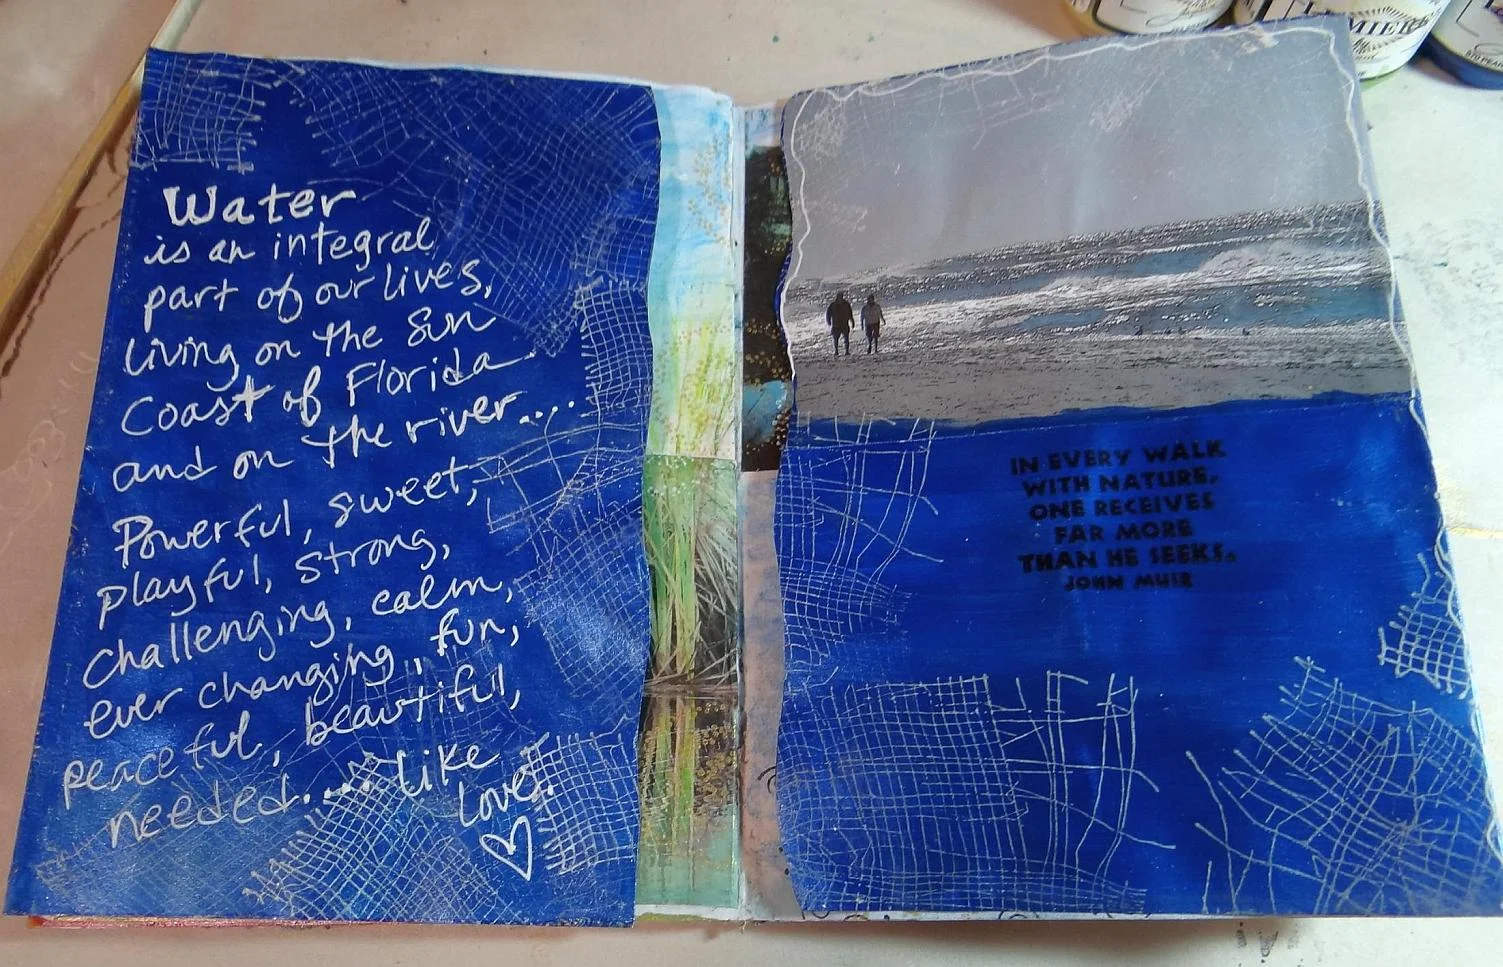 Water
is an integral
part of our lives,
living on the Sun
Coast of Florida
and on the river....
Powerful, sweet,
playful, strong,
challenging, calm,
ever changing, fun,
peaceful, beautiful,
needed.... like
love!
IN EVERY WALK
WITH NATURE,
ONE RECEIVES
FAR MORE
THAN HE SEEKS.
JOHN MUIR